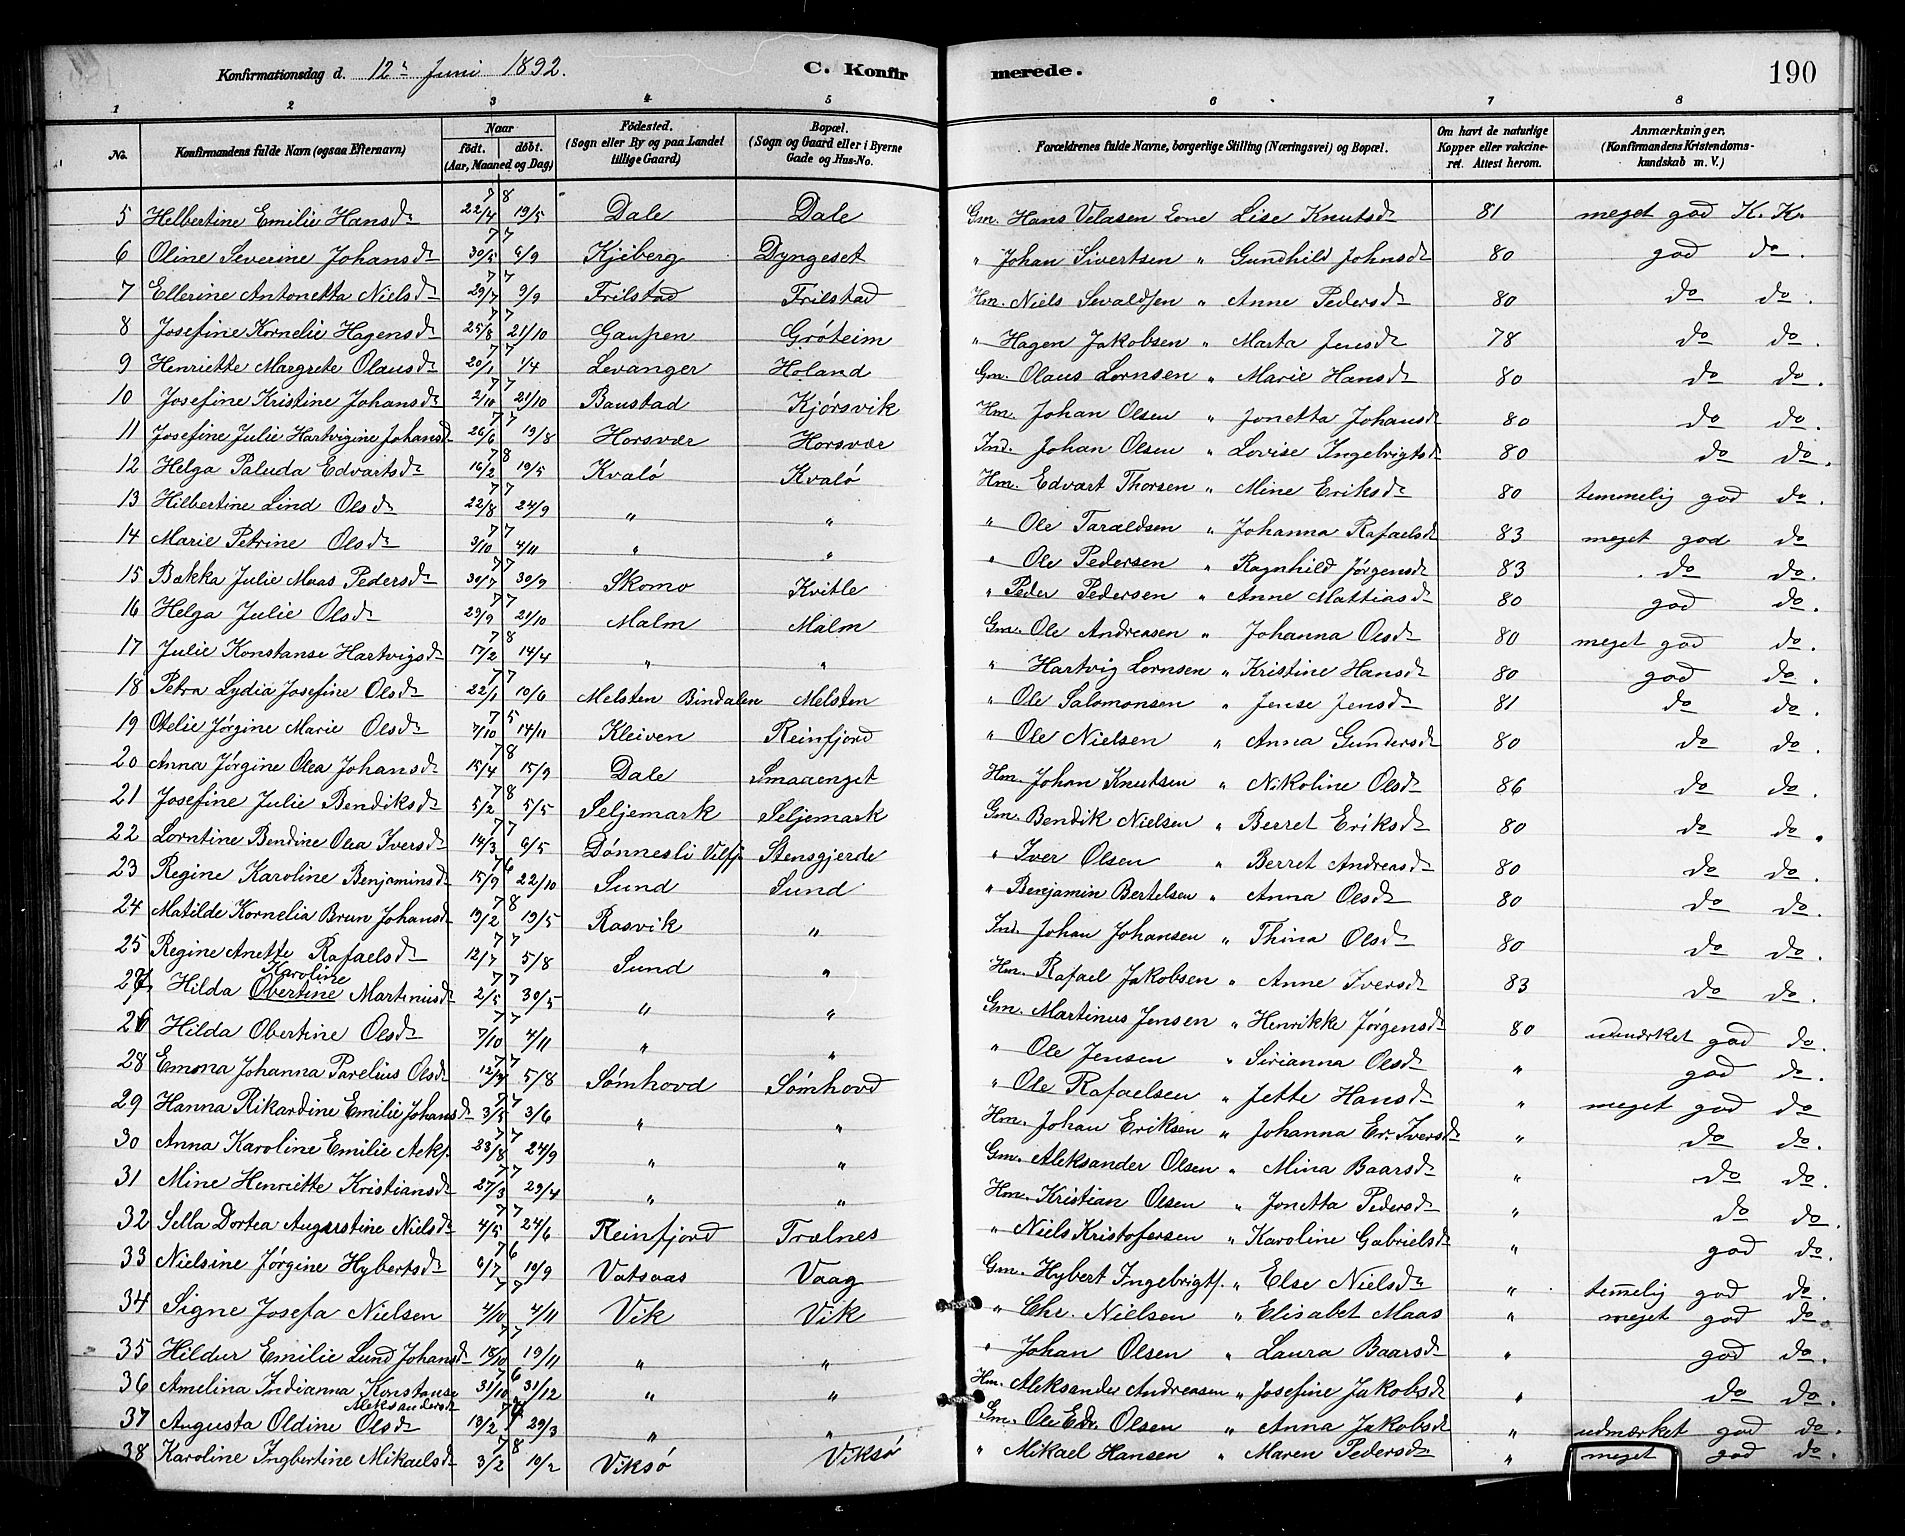 Konfirmationsdag d. 12te Juni 1892. C. Konfirmerede. 190
1 2 3 4 5 6 7 8
No. Konfirmandens fulde Navn (ogsaa Efternavn) Naar født. døbt. (Aar, Maaned og Dag) Födested. (Sogn eller By og paa Landet tillige Gaard) Bopæl. (Sogn og Gaard eller i Byerne Gade og Hus-No. Forældrenes fulde Navne, borgerlige Stilling (Næringsvei) og Bopæl. Om havt de naturlige Kopper eller vakcineret. Attest herom. Anmærkninger. (Konfirmandens Kristendomskundskab m. V.)
5 Helbertine Emilie Hansdr 78 22/4 19/5 Dale Dale Gm. Hans Velasen Lise Knutsdr 81 meget god K. K.
6 Oline Severine Johansdr 77 30/5 6/9 Kjeberg Dyngeset " Johan Sivertsen " Gundhild Johnsdr 80 god do.
7 Ellerine Antonetta Nielsdr 77 29/7 9/9 Frilstad Frilstad Hm. Niels Sevaldsen " Anne Pedersdr 80 do do.
8 Josefine Kornelie Hagensdr 77 25/8 21/10 Gaupen Gróteim " Hagen Jakobsen " Marta Jensdr 78 do do.
9 Henriette Margrete Olausdr 77 20/1 1/4 Levanger Holand Gm. Olaus Lornsen " Marie Hansdr 80 do do.
10 Josefine Kristine Johansdr 77 2/10 21/10 Baustad Kjórsvik Hm. Johan Olsen " Jonetta Johansdr 80 do do.
11 Josefine Julie Hartvigine Johansdr 77 26/6 19/8 Horsvær Horsvær Ind. Johan Olsen " Lovise Ingebrigtsdr 80 do do.
12 Helga Paluda Edvartsdr 78 16/2 19/5 Kvaló Kvaló Hm. Edvart Thorsen " Mine Eriksdr 80 temmelig god do.
13 Hilbertine Lind Olsdr 77 22/8 24/9 " " " Ole Taraldsen " Johanna Rafaelsdr 83 meget god do
14 Marie Petrine Olsdr 77 9/10 4/11 " " " Ole Pedersen " Ragnhild Jørgensdr 83 do do.
15 Bækka Julie Maas Pedersdr 77 30/7 30/9 Skomo Kvitle " Peder Pedersen " Anne Mattiasdr 80 god do.
16 Helga Julie Olsdr 77 29/9 21/10 Malm Malm Gm. Ole Andreasen " Johanna Olsdr 80 meget god do.
17 Julie Konstanse Hartvigsdr 78 17/2 14/4 " " " Hartvig Lornsen " Kristine Hansdr 80 god do.
18 Petra Lydia Josefine Olsdr 77 22/1 10/6 Melsten Bindalen Melsten " Ole Salomonsen " Jense Jensdr 81 do do.
19 Otelie Jørgine Marie Olsdr 75 7/10 14/11 Kleiven Reinfjord " Ole Nielsen " Anna Gundersdr 80 do do.
20 Anna Jørgine Olea Johansdr 78 15/4 15/9 Dale Smaaenget Hm. Johan Knutsen " Nikoline Olsdr 86 do do.
21 Josefine Julie Bendiksdr 78 5/2 5/5 Seljemark Seljemark Gm. Bendik Nielsen " Berret Eriksdr 80 do do.
22 Lorntine Bendine Olea Iversdr 77 14/3 6/5 Dónnesli Velfj. Stensgjerde " Iver Olsen " Berret Andreasdr 80 do do.
23 Regine Karoline Benjaminsdr 76 15/9 22/10 Sund Sund " Benjamin Bertelsen " Anna Olsdr 80 do do.
24 Matilde Kornelia Brun Johansdr 78 19/2 19/5 Rasvik " Ind. Johan Johansen " Thina Olsdr 80 do do.
25 Regine Anette Rafaelsdr 77 12/7 5/8 Sund " Hm. Rafael Jakobsen " Anne Iversdr 83 do do.
27 Hilda Karoline Obertine Martinusdr 77 2/5 30/5 " " Gm. Martinus Jensen " Henrikke Jørgensdr 80 udmærket god do.
26 Hilda Obertine Olsdr 77 7/10 4/11 " " " Ole Jensen " Sirianna Olsdr " god do.
28 Emona Johanna Parelius Olsdr 77 5/8 Sómhovd Sómhovd " Ole Rafaelsen " Jette Hansdr " meget god do
29 Hanna Rikardine Emilie Johansdr 77 3/5 3/6 " " Hm. Johan Eriksen " Johanna Er. Iversdr " do do.
30 Anna Karoline Emilie Aleks. 77 23/8 24/9 " " Gm. Aleksander Olsen " Mina Baarsdr " do do.
31 Mine Henriette Kristiansdr 77 27/3 29/4 " " Hm. Kristian Olsen " Jonetta Pedersdr " do do.
32 Sella Dortea Augustine Nielsdr 77 4/5 24/6 Reinfjord Trælnes " Niels Kristofersen " Karoline Gabrielsdr " god do.
33 Nielsine Jørgine Hybertsdr 76 6/7 10/9 Vatsaas Vaag Gm. Hybert Ingebrigts. " Else Nielsdr " tem̄elig god do.
34 Signe Josefa Nielsen 77 4/10 4/11 Vik Vik " Chr. Nielsen " Elisabet Maas " meget god do.
35 Hildur Emilie Lund Johansdr 77 18/10 19/11 " " " Johan Olsen " Laura Baarsdr " god do.
36 Amelina Indianna Konstanse Aleksandersdr 76 31/10 31/12 " " Hm. Aleksander Andreasen " Josefine Jakobsdr " do do.
37 Augusta Oldine Olsdr 19/2 29/3 " " Gm. Ole Edv. Olsen " Anna Jakobsdr " udmærket god do.
38 Karoline Ingbertine Mikaelsdr 78 3/2 10/2 Viksó Viksó " Mikael Hansen " Maren Pedersdr " meget god do.